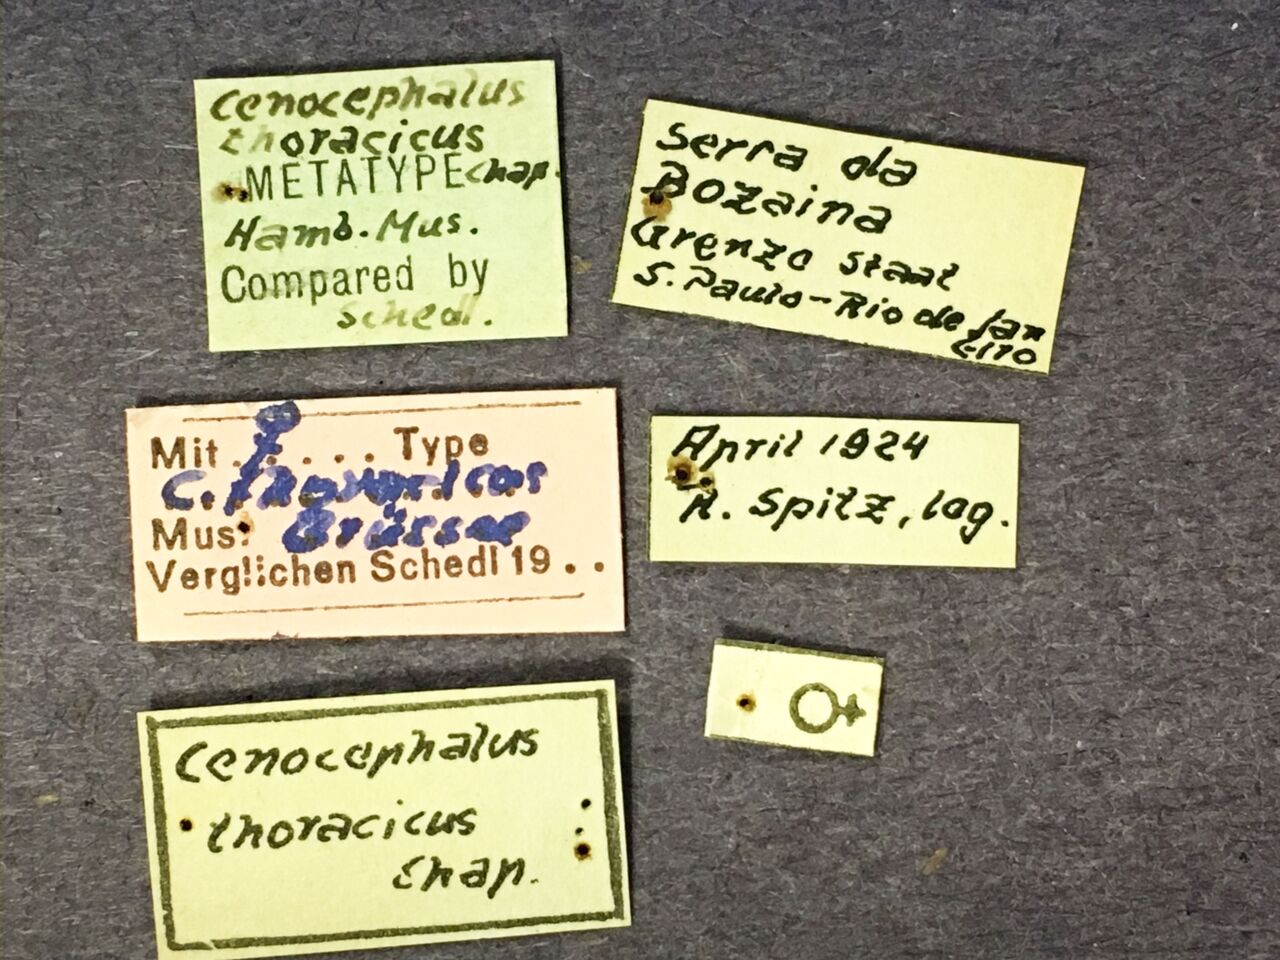 Cenocephalus
thoracicus
METATYPE Chap.
Hamb. Mus.
Compared by
Schedl.
Serra da
Bozaina
Grenze Staat
S. Paulo - Rio de Jan
eiro
Mit ♀ . . . . Type
C. thoracicus
Mus:
Verglichen Schedl 19 . .
April 1924
R. Spitz, lag.
♀
Cenocephalus
thoracicus
Chap.